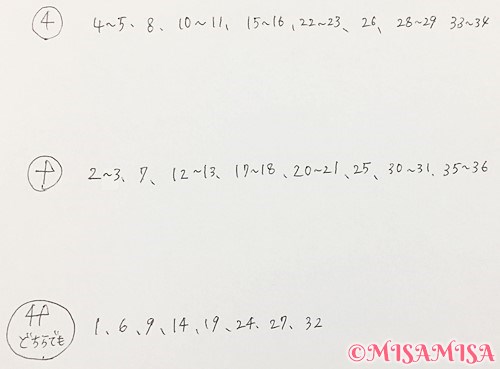 4 4~5、8、10~11、15~16、22~23、26、28~29 33~34
ナ 2~3、7、12~13、17~18、20~21、25、30~31、35~36
どちらでも 1、6、9、14、19、24、27、32
©MISAMISA